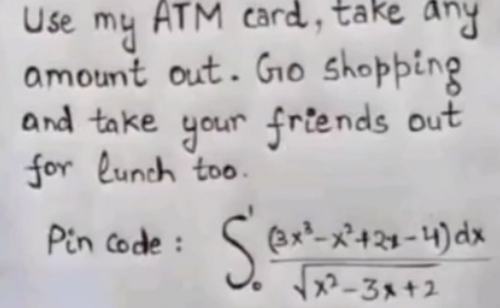 Use my ATM card, take any
amount out. Go shopping
and take your friends out
for lunch too.
Pin code : ∫₀¹ (3x³-x²+2x-4)dx / √x²-3x+2